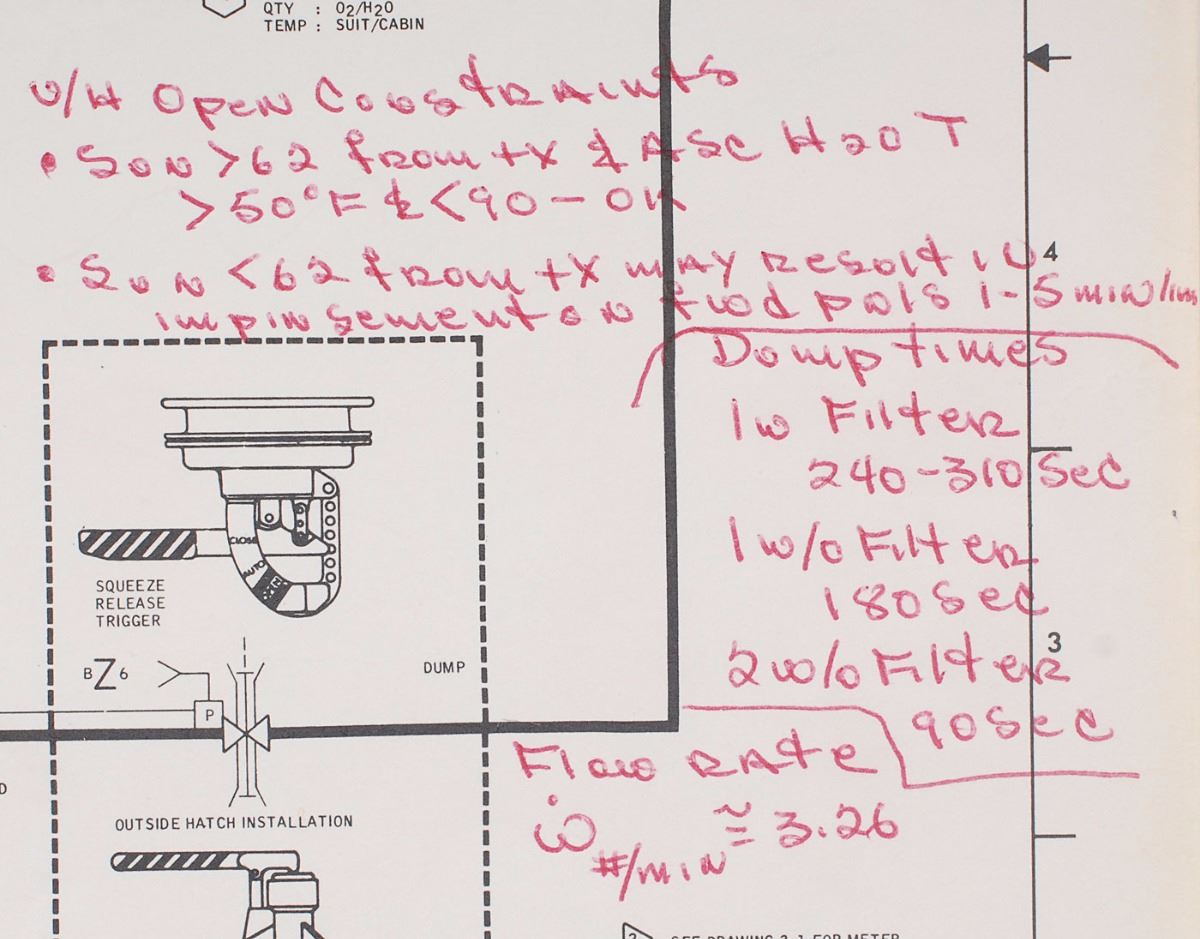 QTY : O2/H2O
TEMP : SUIT/CABIN
O/H Open Constraints
• Sun >62 from +X & ASC H2O T
>50°F & <90 - OK
• Sun <62 from +X may result in
impingement on fwd pnls 1-5 min/
Dump times
1 w Filter
240-310 Sec
1 w/o Filter
180 Sec
2 w/o Filter
90 Sec
Flow rate
ẇ #/min ≅ 3.26
4
3
CLOSE
AUTO
OPEN
SQUEEZE
RELEASE
TRIGGER
BZ6
DUMP
P
D
OUTSIDE HATCH INSTALLATION
2 SEE DRAWING 3.1 FOR METER